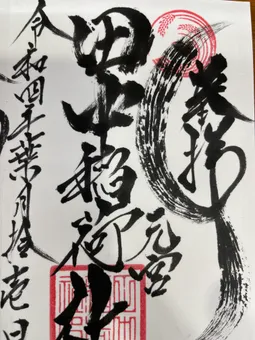 奉拝
元宮
田中稲荷社
令和四年葉月拾壱日